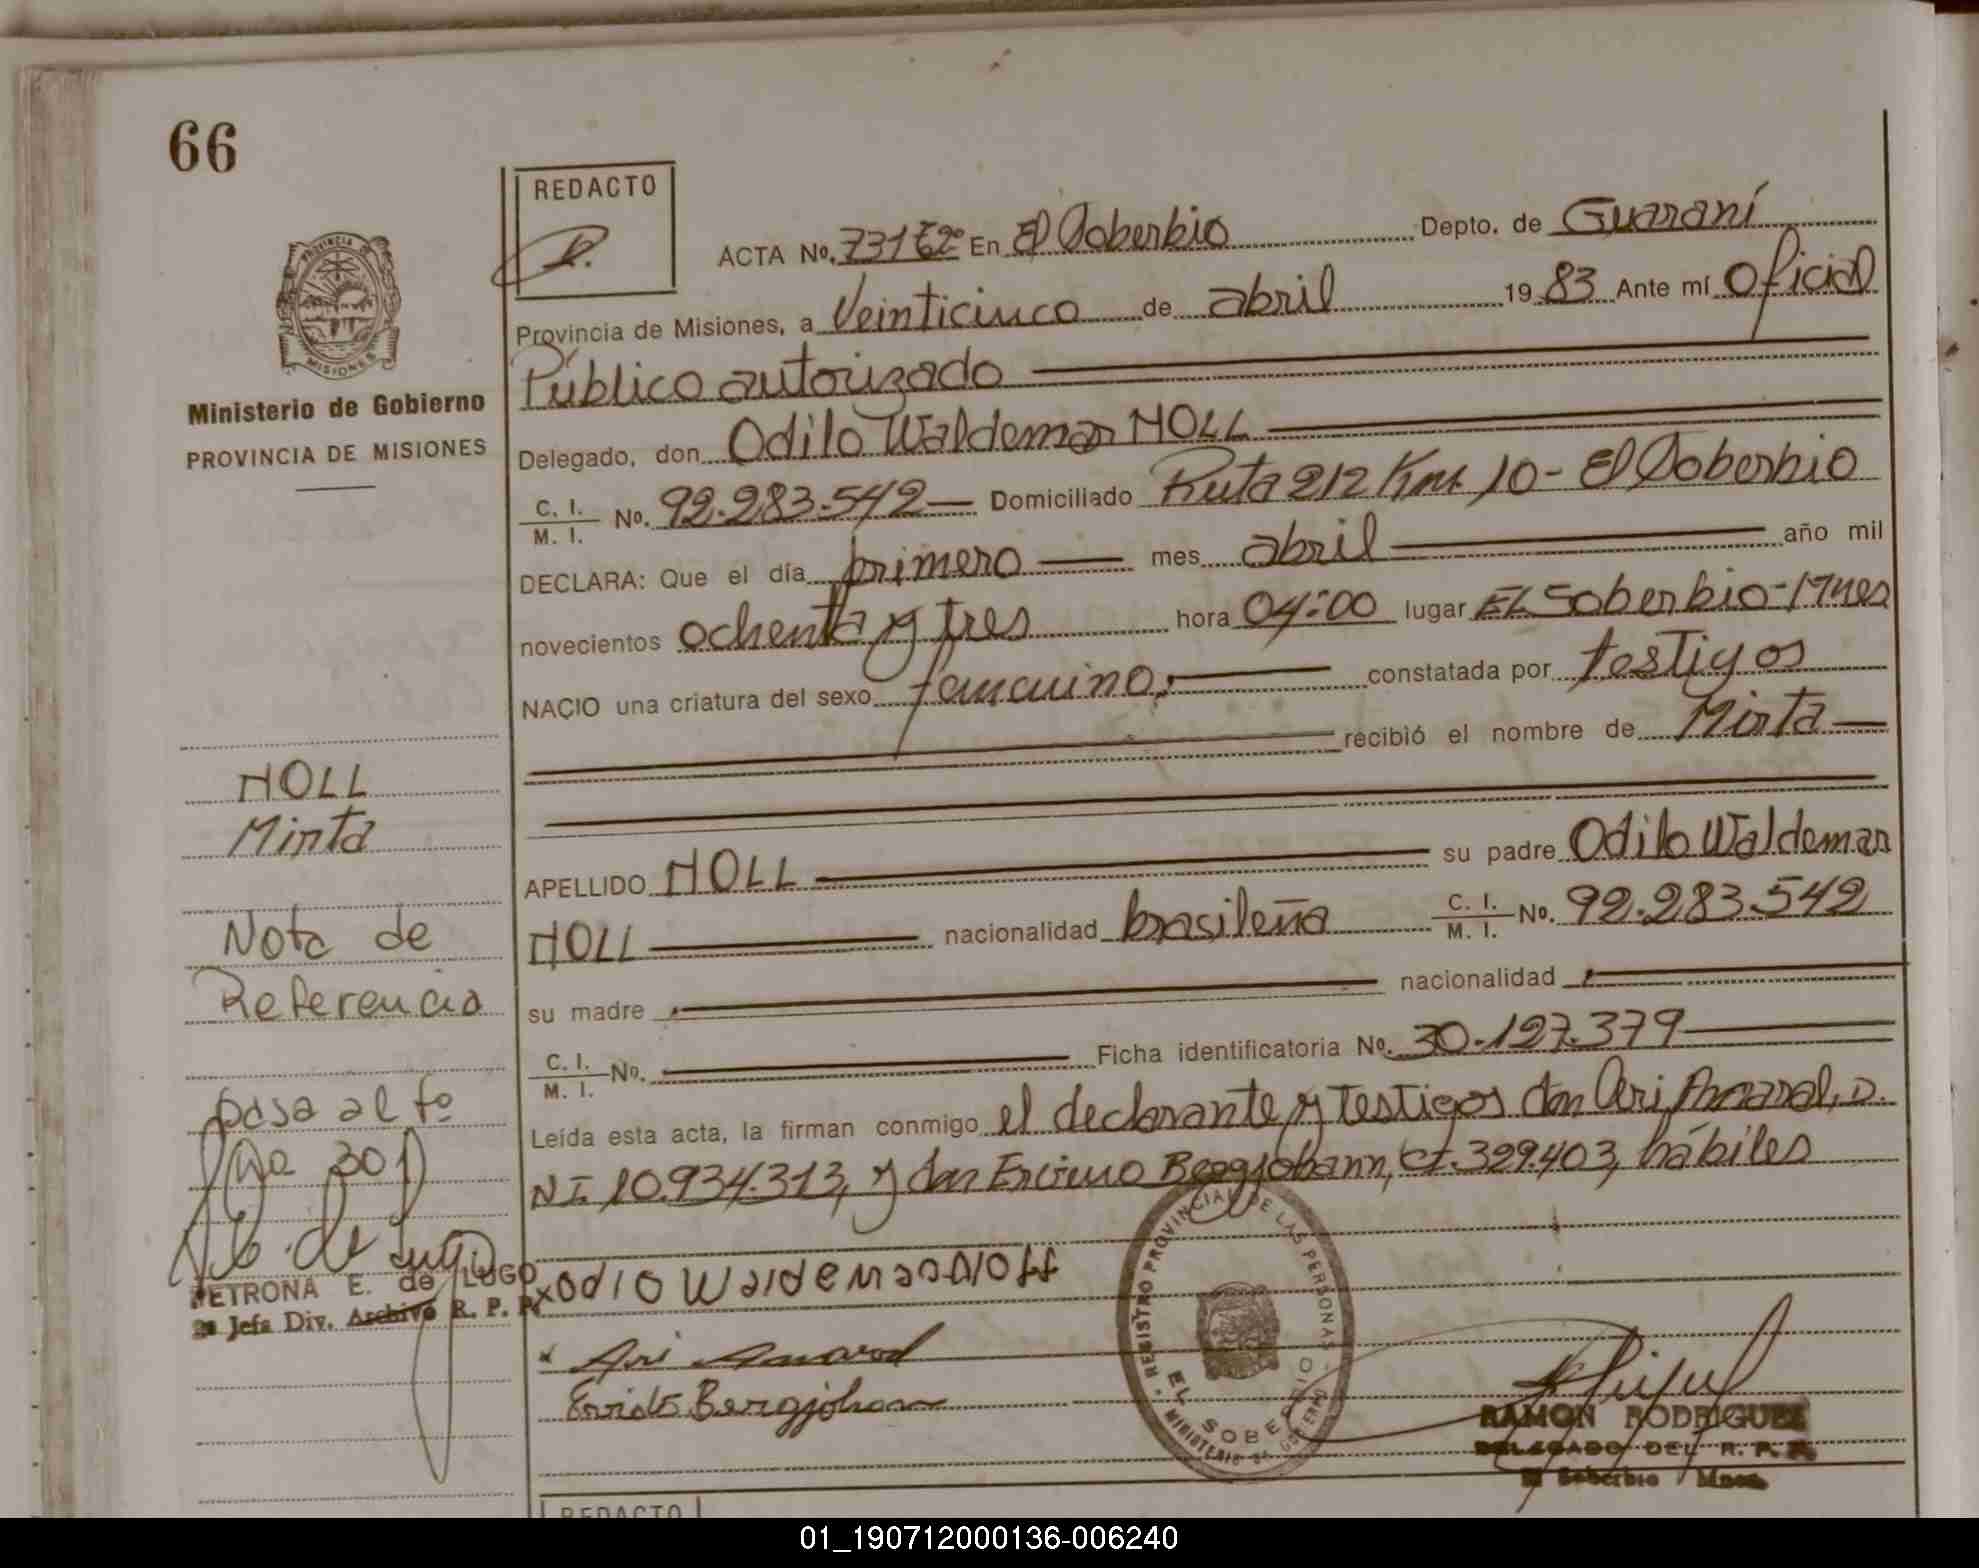 66
REDACTO
ACTA No. 731 Tº 2º En El Soberbio Depto. de Guaraní
Provincia de Misiones, a Veinticinco de abril 19 83 Ante mí Oficial
Público autorizado
Delegado, don Odilo Waldemar NOLL
C. I. / M. I. No. 92.283.542 Domiciliado Ruta 212 Km. 10 - El Soberbio
DECLARA: Que el día primero mes abril año mil
novecientos ochenta y tres hora 04:00 lugar EL Soberbio-Mnes
NACIO una criatura del sexo femenino, constatada por testigos
recibió el nombre de Mirta
APELLIDO NOLL su padre Odilo Waldemar
NOLL nacionalidad brasileña C. I. / M. I. No. 92.283.542
su madre nacionalidad
C. I. / M. I. No. Ficha identificatoria No. 30.127.379
Leída esta acta, la firman conmigo el declarante y testigos don Ari Amaral, D.
N I. 10.934.313, y don Bergjohann, CI. 329.403, hábiles
Ari Amaral
Bergjohann
REGISTRO PROVINCIAL DE LAS PERSONAS
EL SOBERBIO
MINISTERIO DE GOBIERNO
RAMON RODRIGUEZ
DELEGADO DEL R. P. P.
El Soberbio Mnes.
PROVINCIA
MISIONES
Ministerio de Gobierno
PROVINCIA DE MISIONES
NOLL
Mirta
Nota de
Referencia
pasa al fº
301
PETRONA E. de LUGO
2a Jefa Div. Archivo R. P. P.
REDACTO
01_190712000136-006240